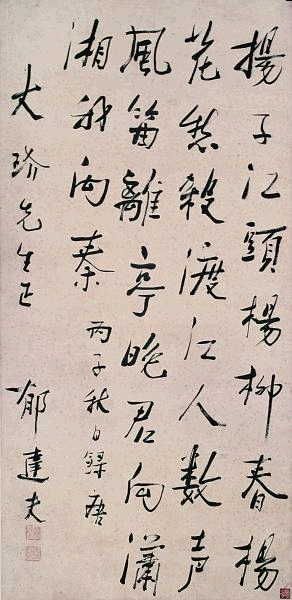 揚子江頭楊柳春楊
花愁殺渡江人數声
風笛離亭晚君向瀟
湘我向秦
丙子秋日錄唐
大先生正
郁達夫